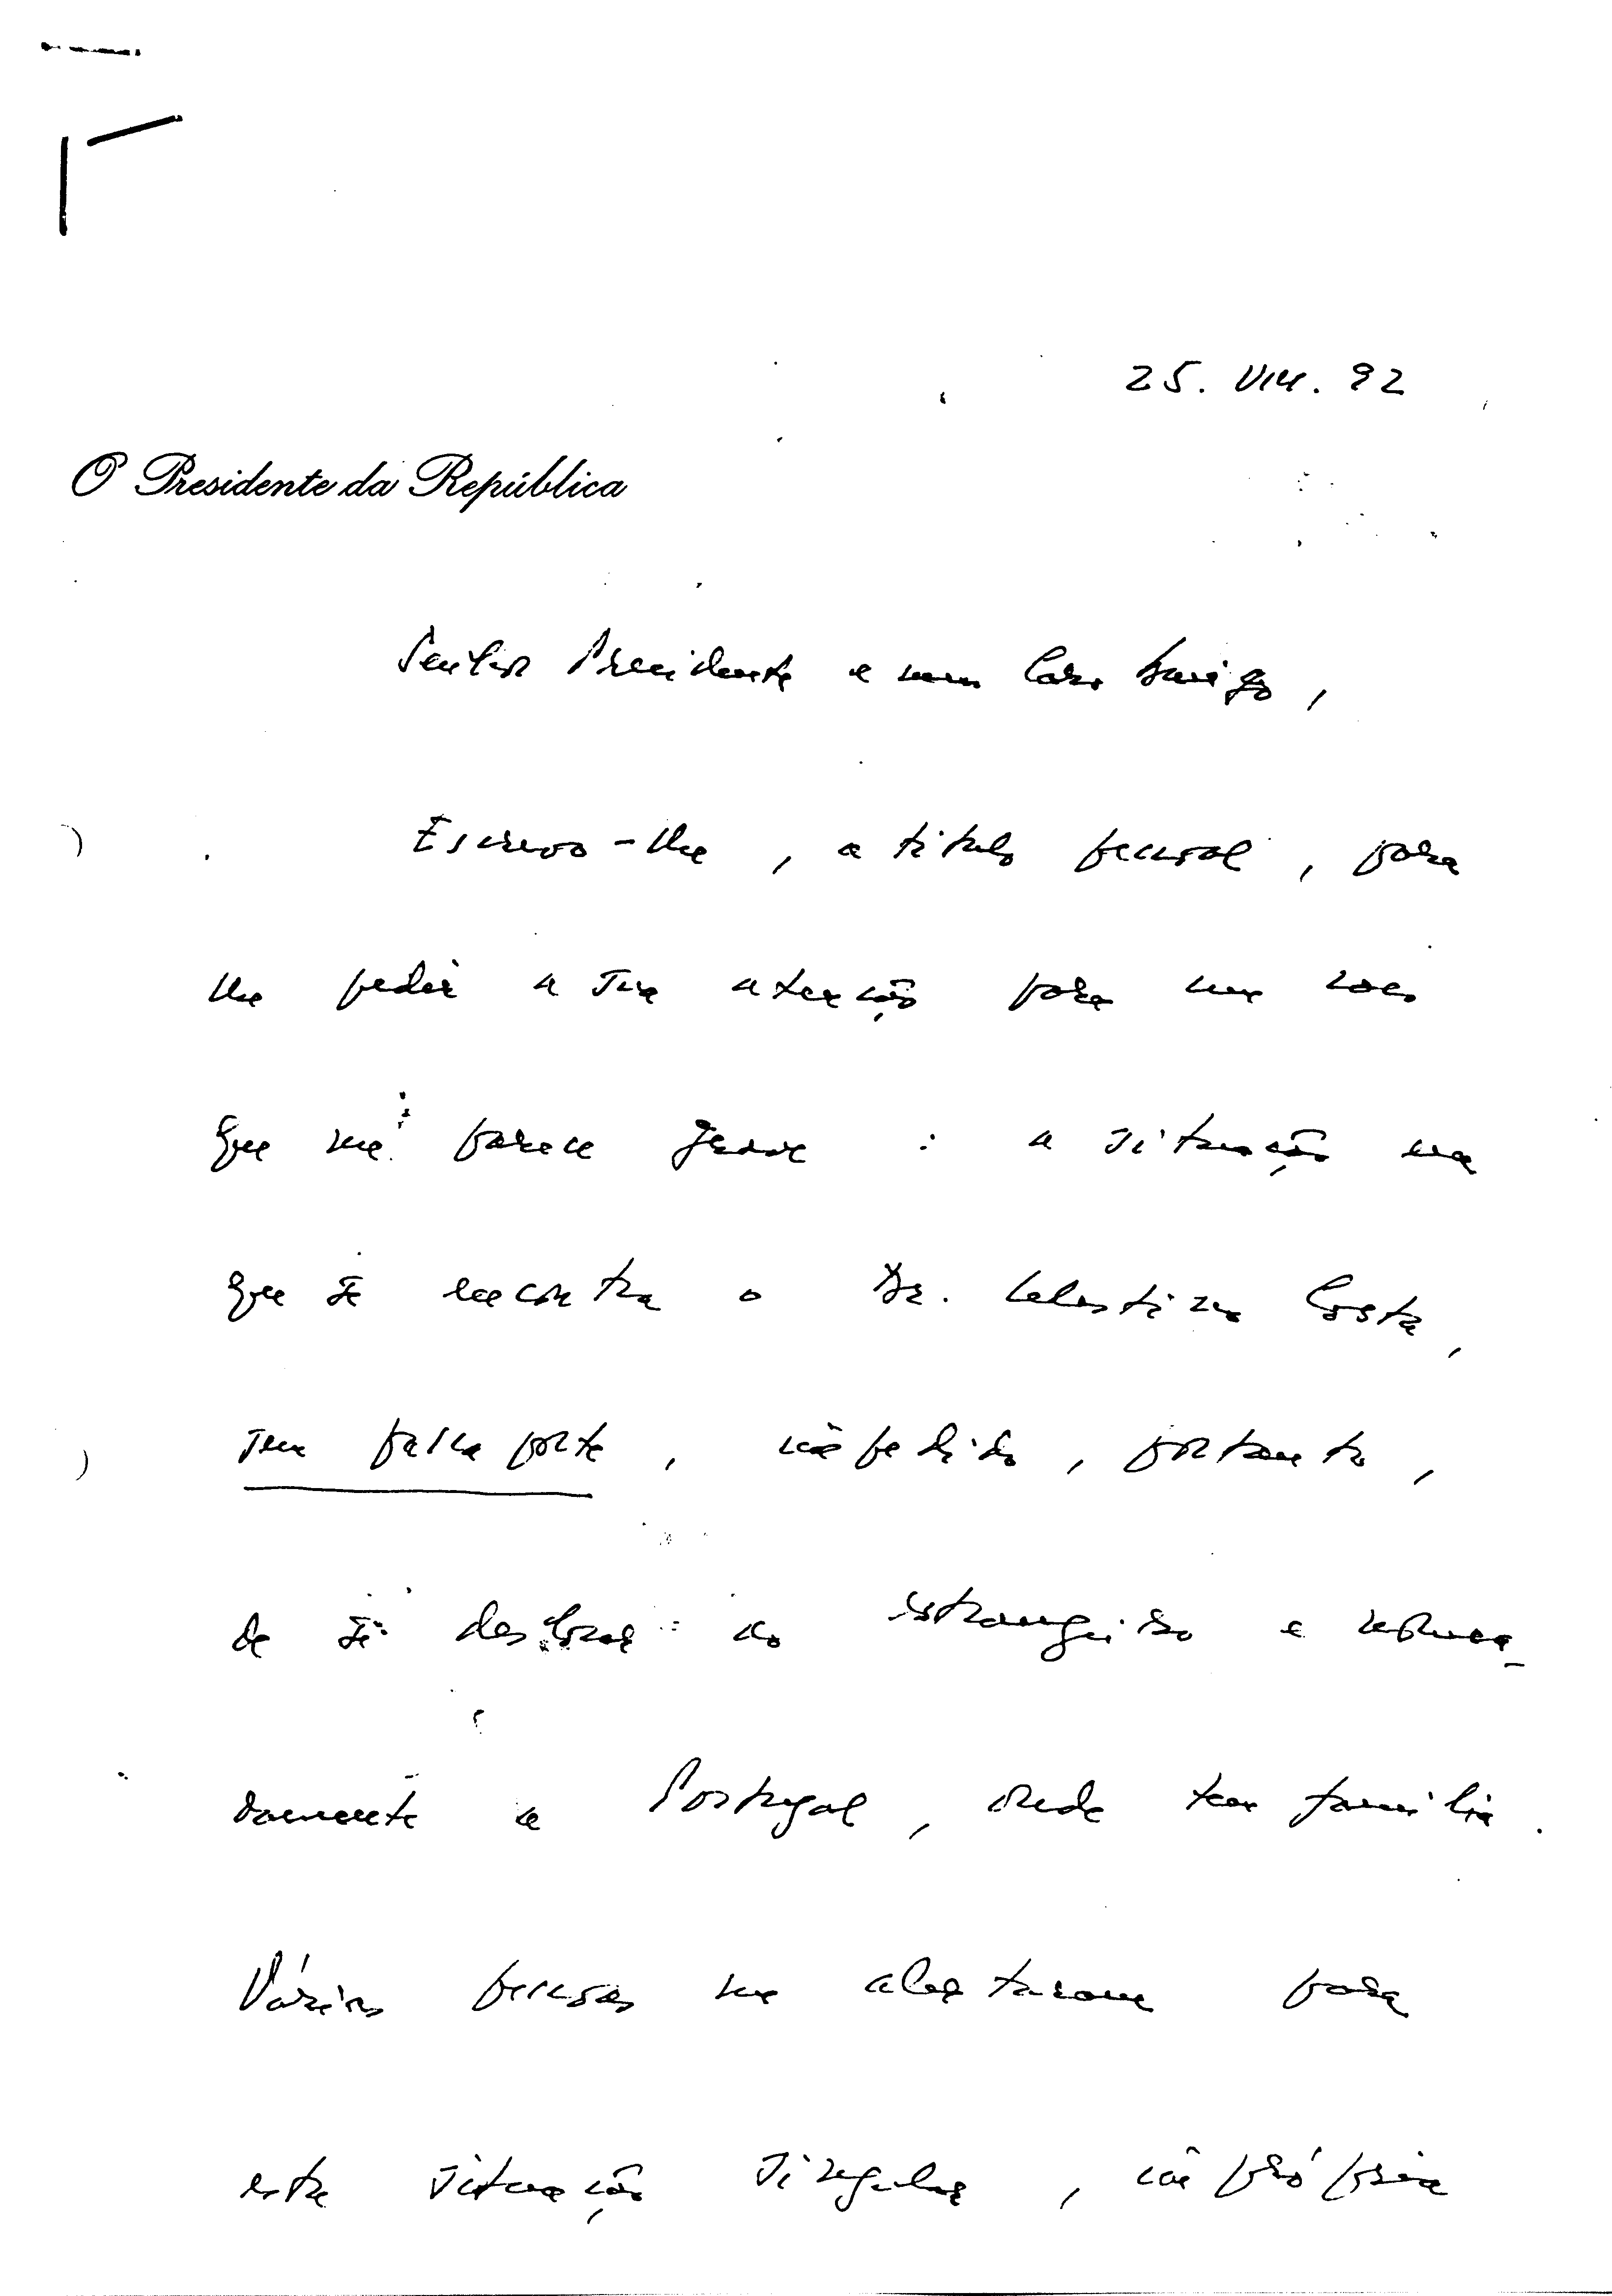 25. VIII. 92
O Presidente da República
Senhor Presidente e meu Caro Amigo,
Escrevo-lhe, a título pessoal, para
lhe pedir a sua atenção para um caso
que me parece grave : a situação em
que se encontra o Dr. Celestino Costa,
sem passaporte, impedido, portanto,
de se deslocar ao estrangeiro e nomea-
damente a Portugal, onde tem família.
Várias pessoas me alertaram para
esta situação singular, imprópria